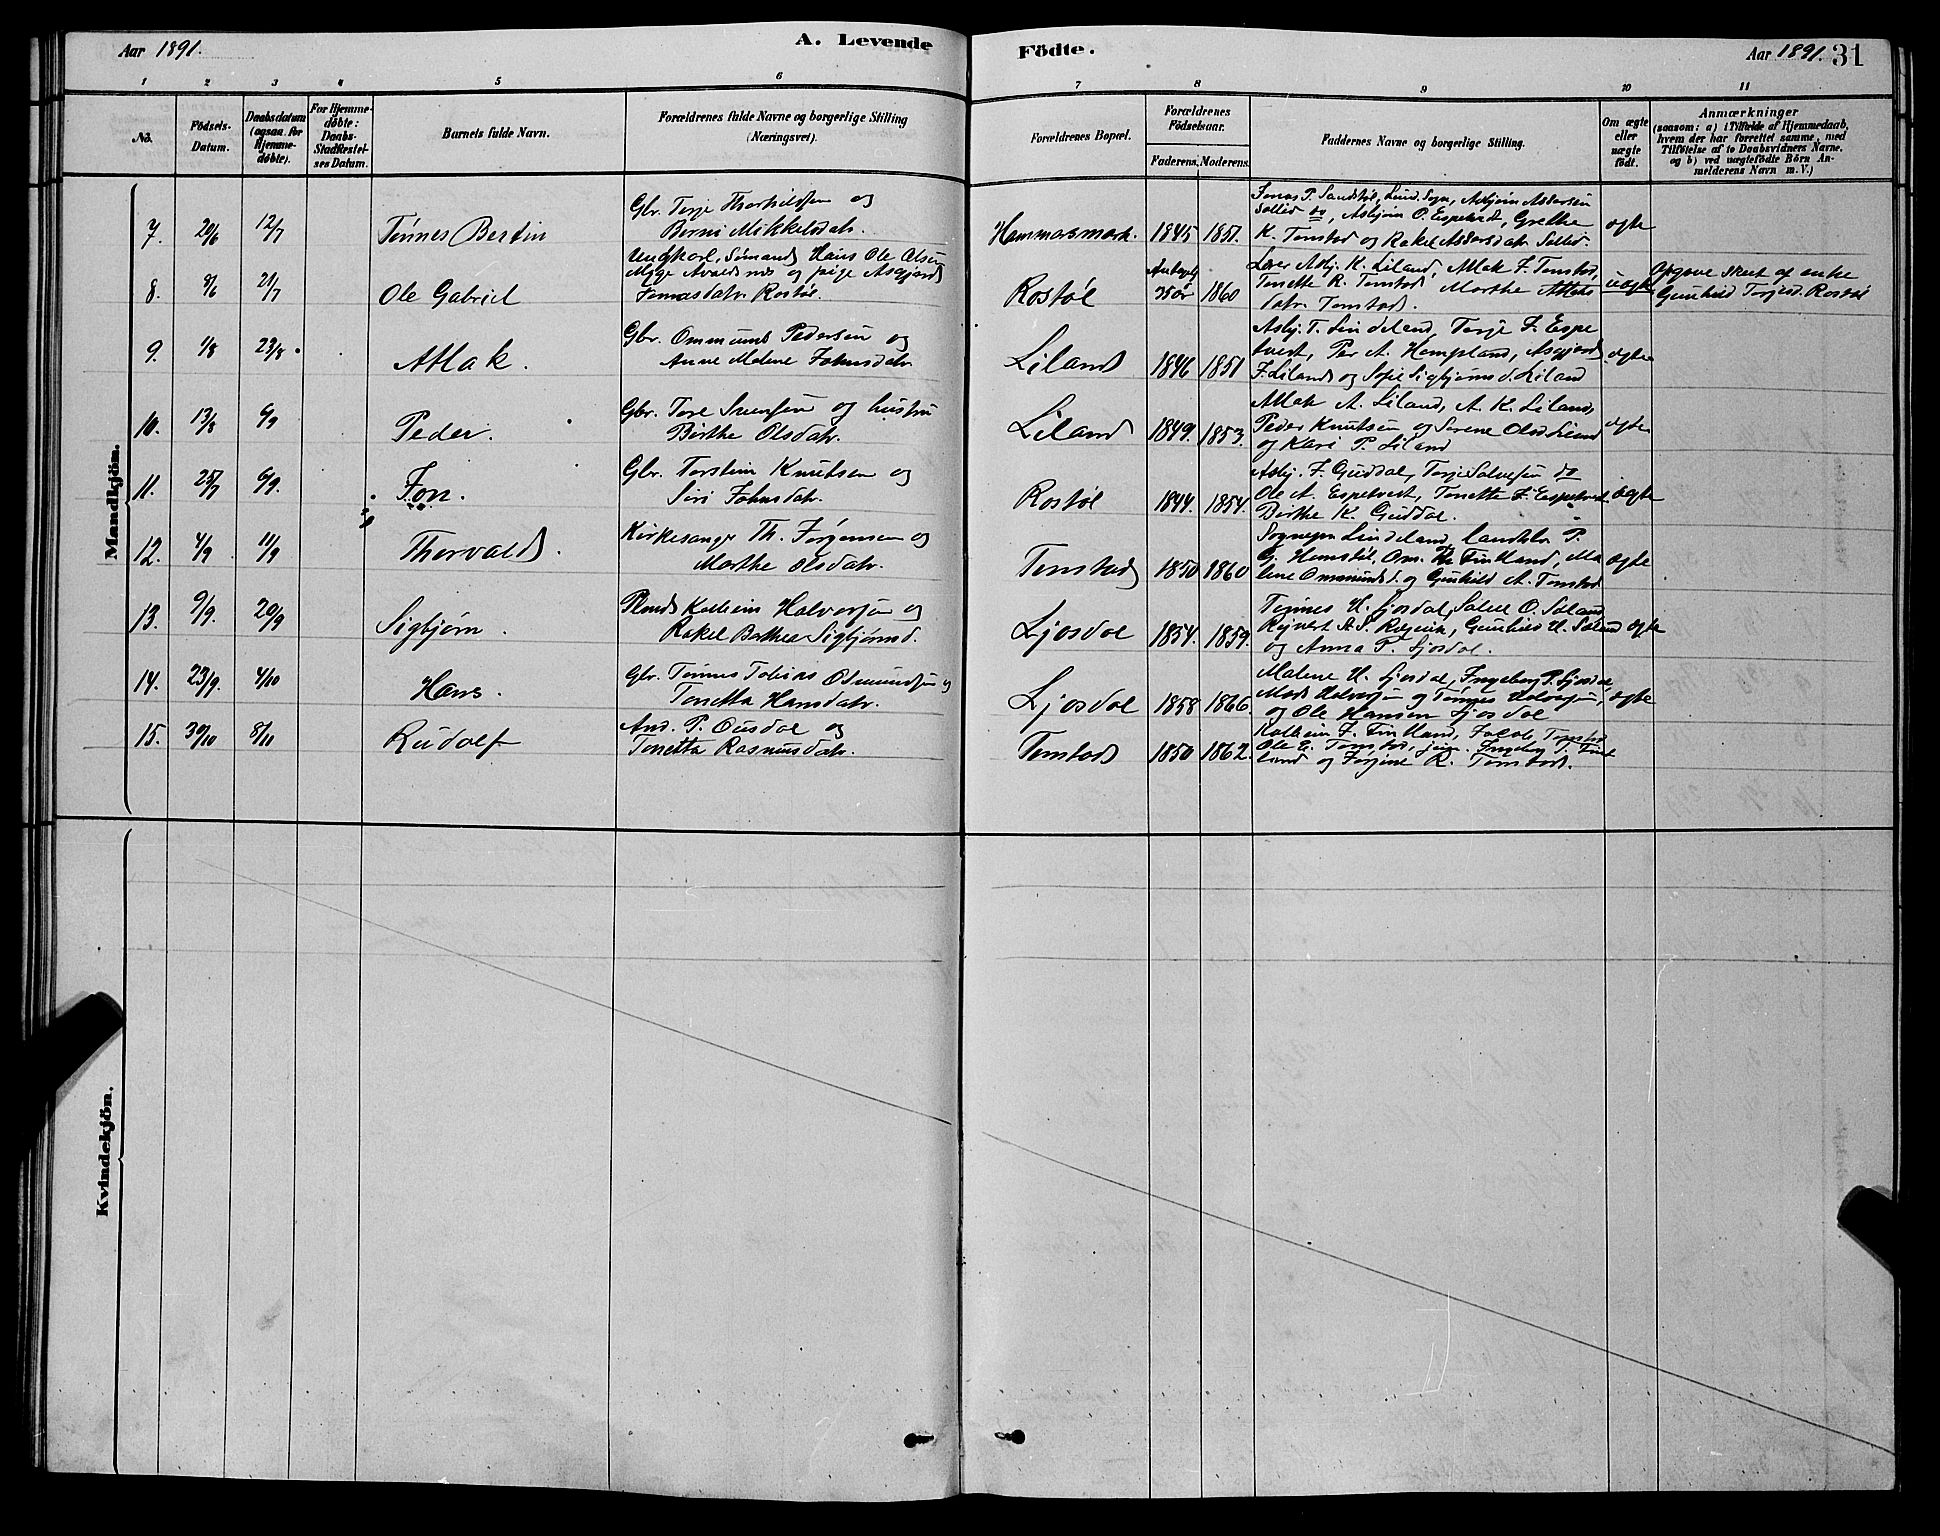 Aar 1891.
A. Levende
Födte.
Aar 1891. 31
1 2 3 4 5 6
7 8 9 10 11
No.
Födsels-Datum.
Daabsdatum (ogsaa for Hjemmedöbte).
For Hjemmedöbte: Daabs-Stadfæstelses Datum.
Barnets fulde Navn.
Forældrenes fulde Navne og borgerlige Stilling (Næringsvei).
Forældrenes Bopæl.
Forældrenes Födselsaar.
Faderens. Moderens.
Faddernes Navne og borgerlige Stilling.
Om ægte eller uægte födt.
Anmærkninger
(saasom: a) i Tilfælde af Hjemmedaab,
hvem der har forrettet samme, med
Tilföielse af to Daabsvidners Navne,
og b) ved uægtefödte Börn Anmelderens Navn m. V.)
Mandkjön.
7. 20/6 12/7 Tønnes Bertin
Gbr. Terje Thorkildsen og
Berni Mikkelsdatr.
Hammarsmark. 1845 1851.
Jonas P. Sandstøl, Lund Sogn, Asbjørn Assersen
Sollid do, Asbjørn O. Espetvedt, Grethe
K. Tonstad og Rakel Assersdatr Sollid.
ægte
8. 8/6 21/7 Ole Gabriel
Ungkarl, Sømand Hans Ole Olsen
og pige Asgjerd
Jonasdatr. Rostøl.
Rostøl 1860
Lærer Asbj. K. Liland, Atlak F. Tonstad,
Tonette R. Tonstad Marthe Atlaks
datr. Tonstad.
uægte
Opgave skeet af enke
Gunhild Terjesd. Rostøl
9. 1/8 23/8. Atlak.
Gbr. Ommund Pedersen og
Anne Malene Johnsdatr.
Liland 1846 1851
Asbj. T. Lindeland, Terje F. Espe
tvert, Per A. Hompland, Asgjerd
F. Liland og Sofie Sigbjørnsd. Liland
ægte
10. 13/8 6/9 Peder.
Gbr. Tore Svensen og hustru
Birthe Olsdatr.
Liland 1849. 1853.
Atlak A. Liland, A. K. Liland,
Peder Knutsen og Serene Olsd. Liland
og Kari P. Liland
ægte
11. 25/7 6/9. Jon.
Gbr. Torstein Knutsen og
Siri Johnsdatr.
Rostøl 1844. 1854.
Asbj. F. Guddal, Terje Salvesen do
Ole A. Espetvert, Tonette F. Espetvedt
Birthe K. Guddal.
ægte
12. 4/9 11/9 Thorvald.
Kirkesanger Th. Jørgensen og
Marthe Olsdatr.
Tonstad 1850 1860
Sognepr. Lindeland, Landhdlr P.
G. Homstøl, Om. Th. Fintland, Ma
lene Ommundsd. og Gunhild A. Tonstad
ægte
13. 9/9. 20/9 Sigbjørn.
Plads Kolbein Halvorsen og
Rakel Berthea Sigbjørnsd.
Ljosdal 1854. 1859.
Tønnes H. Ljosdal, Salve O. Soland
Reinert A. S. Gunhild H. Soland
og Anna P. Ljosdal.
ægte
14. 23/9. 4/10 Hans.
Gbr. Tønnes Tobias Osmundsen og
Tonetta Hansdatr.
Ljosdal 1858 1866.
Malene H. Ljosdal, Ingeborg P. Ljosdal,
Mads Halvorsen og Tønnes Halvorsen,
og Ole Hansen Ljosdal
ægte
15. 30/10 8/11 Rudolf
And. P. Ousdal og
Tonetta Rasmusdatr.
Tonstad 1850 1862.
Kolbein F. Fintland, Jacob Tonstad
Ole E. Tonstad, Ingeborg T. Fint
land og Jørgine R. Tonstad.
Kvindekjön.